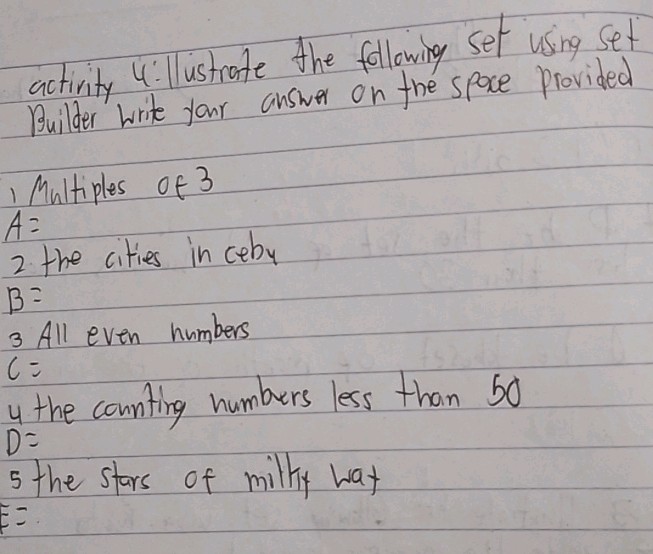 activity 4: Illustrate the following set using set
Builder write your answer on the space provided
1 Multiples of 3
A=
2. the cities in cebu
B=
3 All even numbers
C=
4 the counting numbers less than 50
D=
5 the stars of milky way
E=